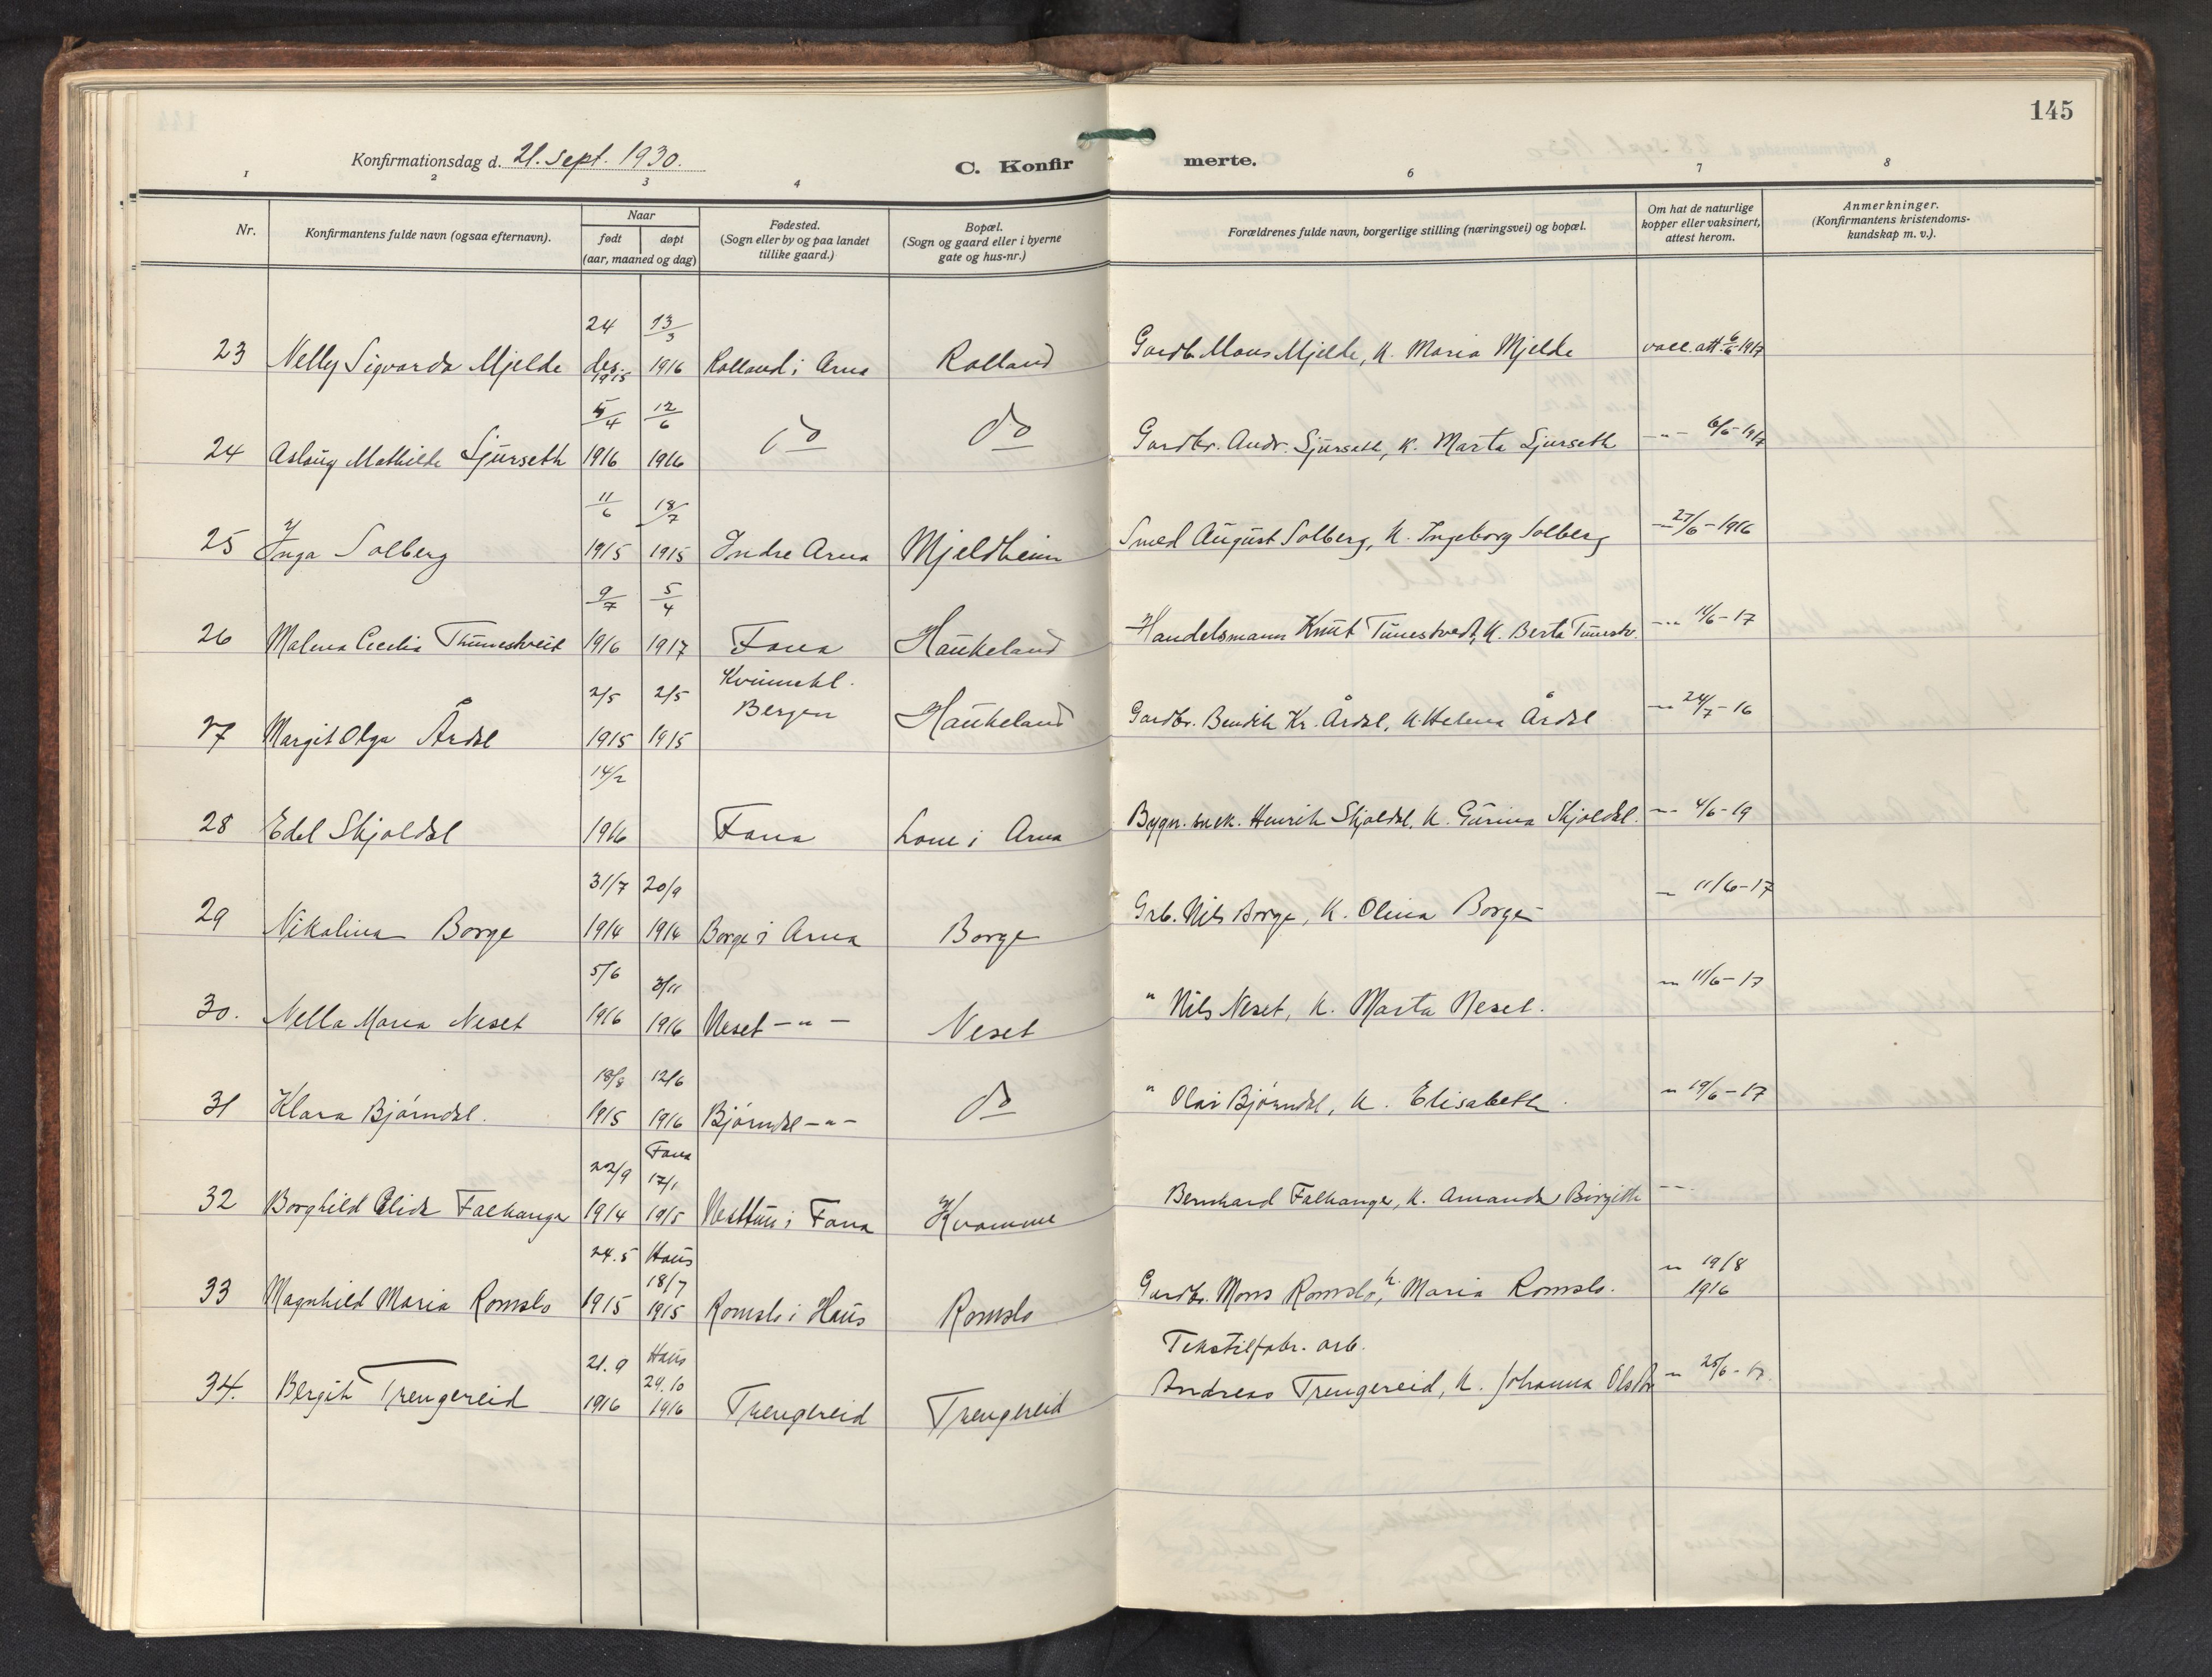 145
Konfirmationsdag d. 21. sept. 1930.
C. Konfir merte.
1 2 3 4 6 7 8
Nr.
Konfirmantens fulde navn (ogsaa efternavn).
Naar
født døpt
(aar, maaned og dag)
Fødested.
(Sogn eller by og paa landet
tillike gaard.)
Bopæl.
(Sogn og gaard eller i byerne
gate og hus-nr.)
Forældrenes fulde navn, borgerlige stilling (næringsvei) og bopæl.
Om hat de naturlige
kopper eller vaksinert,
attest herom.
Anmerkninger.
(Konfirmantens kristendoms-
kundskap m. v.).
24 13/3
23 Nelly Sigvarda Mjelde des. 1915 1916 Rolland i Arna Rolland Gardbr. Mons Mjelde, K. Maria Mjelde vacc. att. 6/6 1917
5/4 12/6
24 Aslaug Mathilde Sjurseth 1916 1916 do do Gardbr. Andr. Sjurseth, K. Marta Sjurseth -"- 6/6-1917
11/6 18/7
25 Inga Solberg 1915 1915 Indre Arna Mjeldheim Smed August Solberg, K. Ingeborg Solberg -"- 27/6-1916
9/7 5/4
26 Malena Cecilia Thunestveit 1916 1917 Fana Haukeland Handelsmann Knut Tunestvedt, K. Berta Tunestv. -"- 11/6-17
2/5 2/5 Kvinnekl.
27 Margit Olga Årdal 1915 1915 Bergen Haukeland Gardbr. Bendik Kr. Årdal, K. Helena Årdal -"- 24/7-16
14/2
28 Edel Skjoldal 1916 Fana Lone i Arna Bygn. snek. Henrik Skjoldal, K. Gurina Skjoldal. -"- 4/6-19
31/7 20/9
29 Nikolina Borge 1914 1914 Borge i Arna Borge Grb. Nils Borge, K. Olina Borge -"- 11/6-17
5/6 3/11
30. Nella Maria Neset 1916 1916 Neset -"- Neset " Nils Neset, K. Marta Neset. -"- 11/6-17
18/8 12/6
31 Klara Bjørndal. 1915 1916 Bjørndal -"- do " Olai Bjørndal, K. Elisabeth. " 19/6-17
22/9 Fana 17/1
32 Borghild Elida Falkanger 1914 1915 Nesttun i Fana Kvamme Bernhard Falkanger, K. Amanda Birgitte -"-
24.5 Haus 18/7
33 Magnhild Maria Romslo 1915 1915 Romslo i Haus Romslo Gardbr. Mons Romslo, k. Maria Romslo. " 19/8 1916
21.9 Haus 29.10 Tekstilfabr. arb.
34. Bergit Trengereid 1916 1916 Trengereid Trengereid Andreas Trengereid, K. Johanna Olsdtr. " 25/6-17.